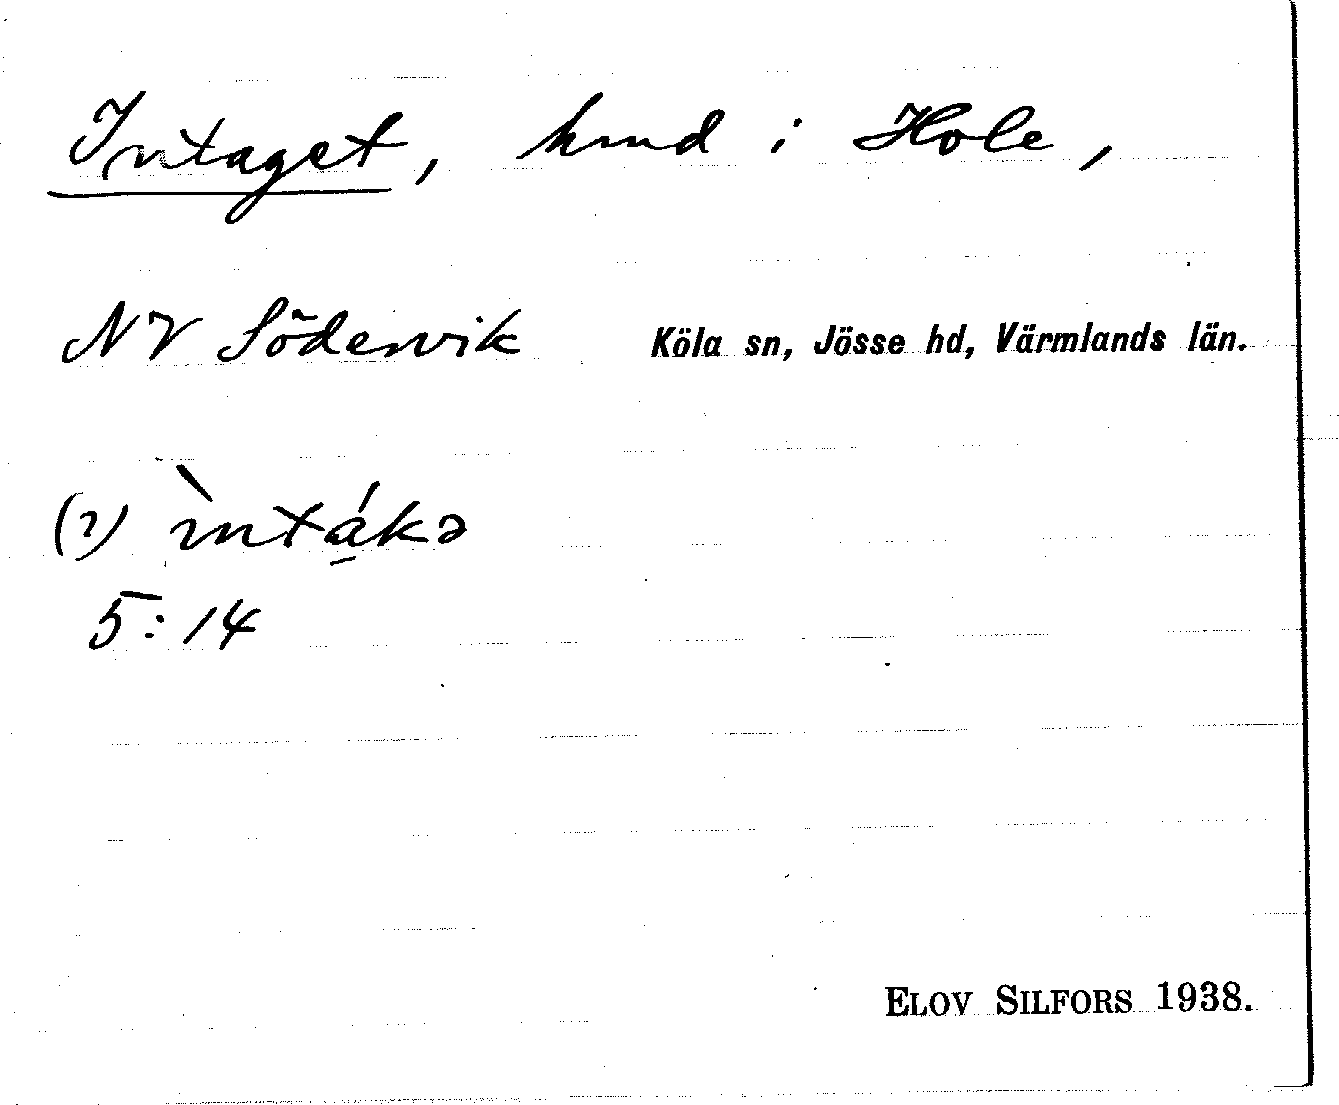 Intaget, hmd i Hole,
NV Södervik Köla sn, Jösse hd, Värmlands län.
(?) ìntákə
5:14
ELOV SILFORS 1938.